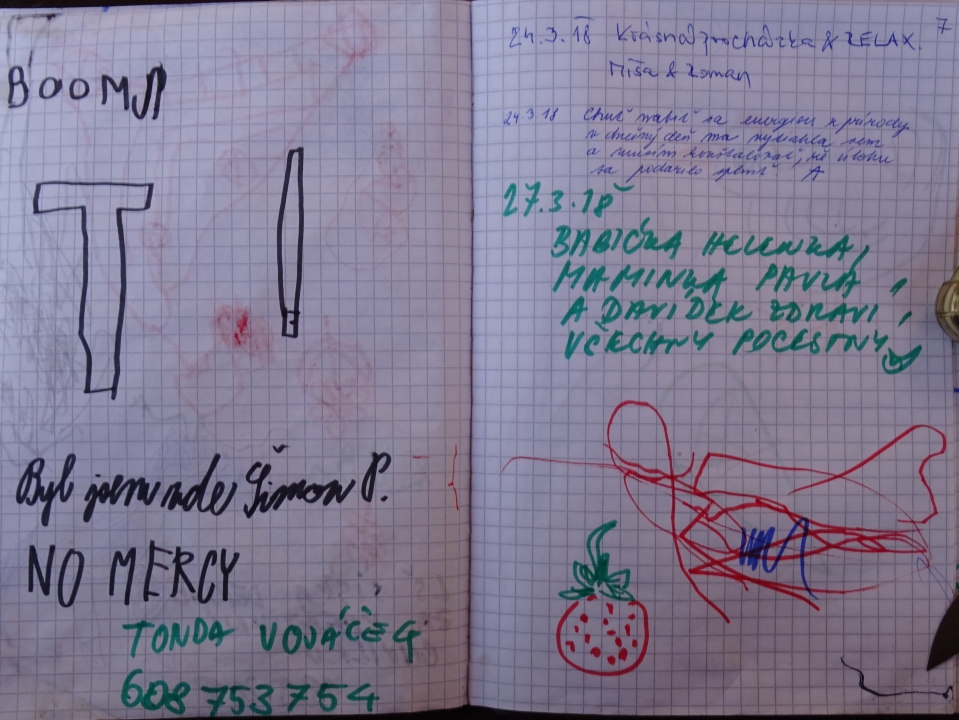 BOOM
T
Byl jsem zde Šimon P.
NO MERCY
TONDA
608 753 754
7
24.3.18 Krásná procházka & RELAX.
Míša & Roman
24.3.18 Chuť nabiť sa energiou z prírody
v dnešný deň ma vylákala sem
a musím konštatovať, že úlohu
sa podarilo splniť A
27.3.18
BABIČKA HELENKA,
MAMINKA PAVLA,
A DAVÍDEK ZDRAVI,
VŠECHNY POCESTNY